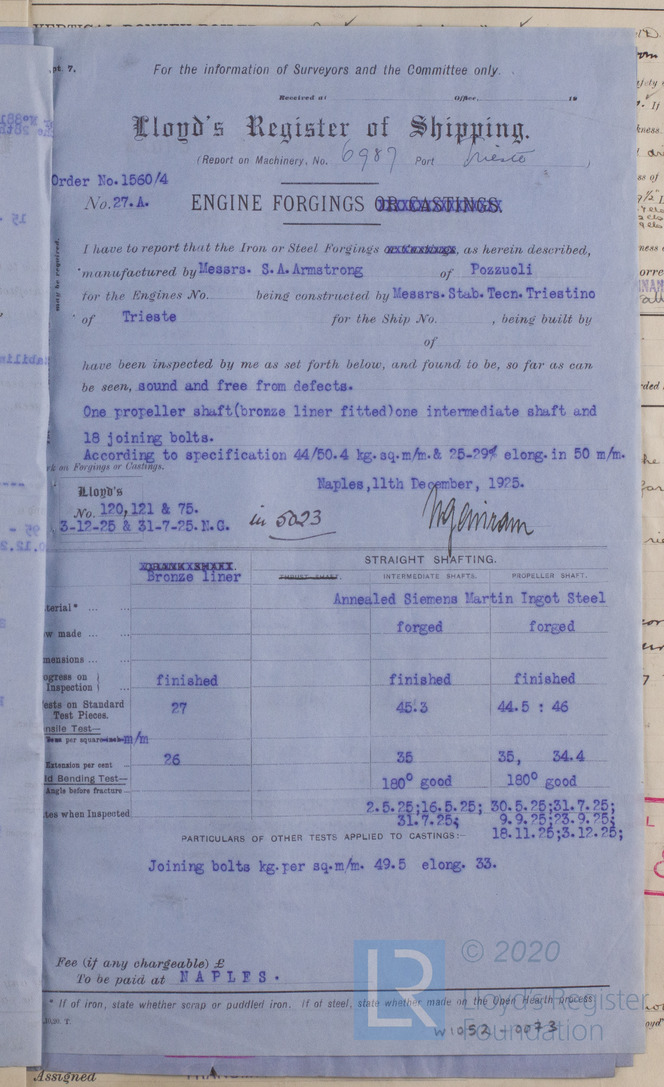 pt. 7.
For the information of Surveyors and the Committee only.
Received at Office, 19
Lloyd's Register of Shipping.
(Report on Machinery, No. 6987 Port Trieste )
Order No.1560/4
No.27.A. ENGINE FORGINGS OR CASTINGS
I have to report that the Iron or Steel Forgings , as herein described,
manufactured by Messrs. S.A.Armstrong of Pozzuoli
for the Engines No. being constructed by Messrs.Stab.Tecn.Triestino
of Trieste for the Ship No. , being built by
of
may be required.
have been inspected by me as set forth below, and found to be, so far as can
be seen, sound and free from defects.
One propeller shaft(bronze liner fitted)one intermediate shaft and
18 joining bolts.
According to specification 44/50.4 kg.sq.m/m.& 25-29% elong.in 50 m/m.
rk on Forgings or Castings.
Naples,11th December, 1925.
Lloyd's
No. 120,121 & 75.
3-12-25 & 31-7-25.N.G.
in 5023
CRANK SHAFT.
Bronze liner
THRUST SHAFT.
STRAIGHT SHAFTING.
INTERMEDIATE SHAFTS. PROPELLER SHAFT.
terial* ... ... Annealed Siemens Martin Ingot Steel
w made ... ... forged forged
mensions ... ...
ogress on
Inspection ... finished finished finished
ests on Standard
Test Pieces. 27 45.3 44.5 : 46
nsile Test—
Tons per square inch m/m
Extension per cent 26 35 35, 34.4
ld Bending Test—
Angle before fracture 180° good 180° good
tes when Inspected 2.5.25;16.5.25; 30.5.25;31.7.25;
31.7.25; 9.9.25;23.9.25;
18.11.25;3.12.25;
PARTICULARS OF OTHER TESTS APPLIED TO CASTINGS:—
Joining bolts kg.per sq.m/m. 49.5 elong. 33.
Fee (if any chargeable) £
To be paid at NAPLES.
* If of iron, state whether scrap or puddled iron. If of steel, state whether made on the Open Hearth process
.10.20. T.
LR
© 2020
Lloyd's Register
Foundation
W1052-0073
Assigned